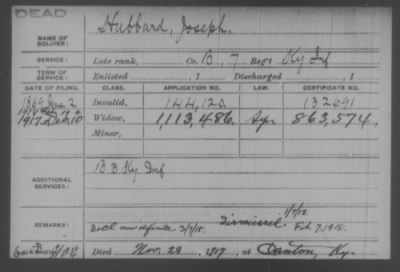 DEAD
NAME OF SOLDIER: Hubbard, Joseph.
SERVICE: Late rank, Co. B, 7 Reg't Ky Inf
TERM OF SERVICE: Enlisted , 1 Discharged , 1
DATE OF FILING. CLASS. APPLICATION NO. LAW. CERTIFICATE NO.
1869 June 2 Invalid, 144,120. 132691
1917 Dec 10 Widow, 1,113,486. 863,574.
Minor,
ADDITIONAL SERVICES: B 3 Ky Inf
REMARKS: Dismissed. Feb. 7, 1918.
Died Nov. 28, 1917, at Canton, Ky.